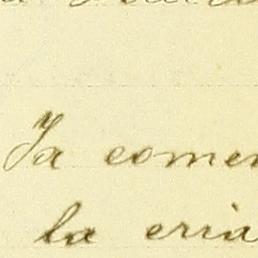 Ja comen
la cria